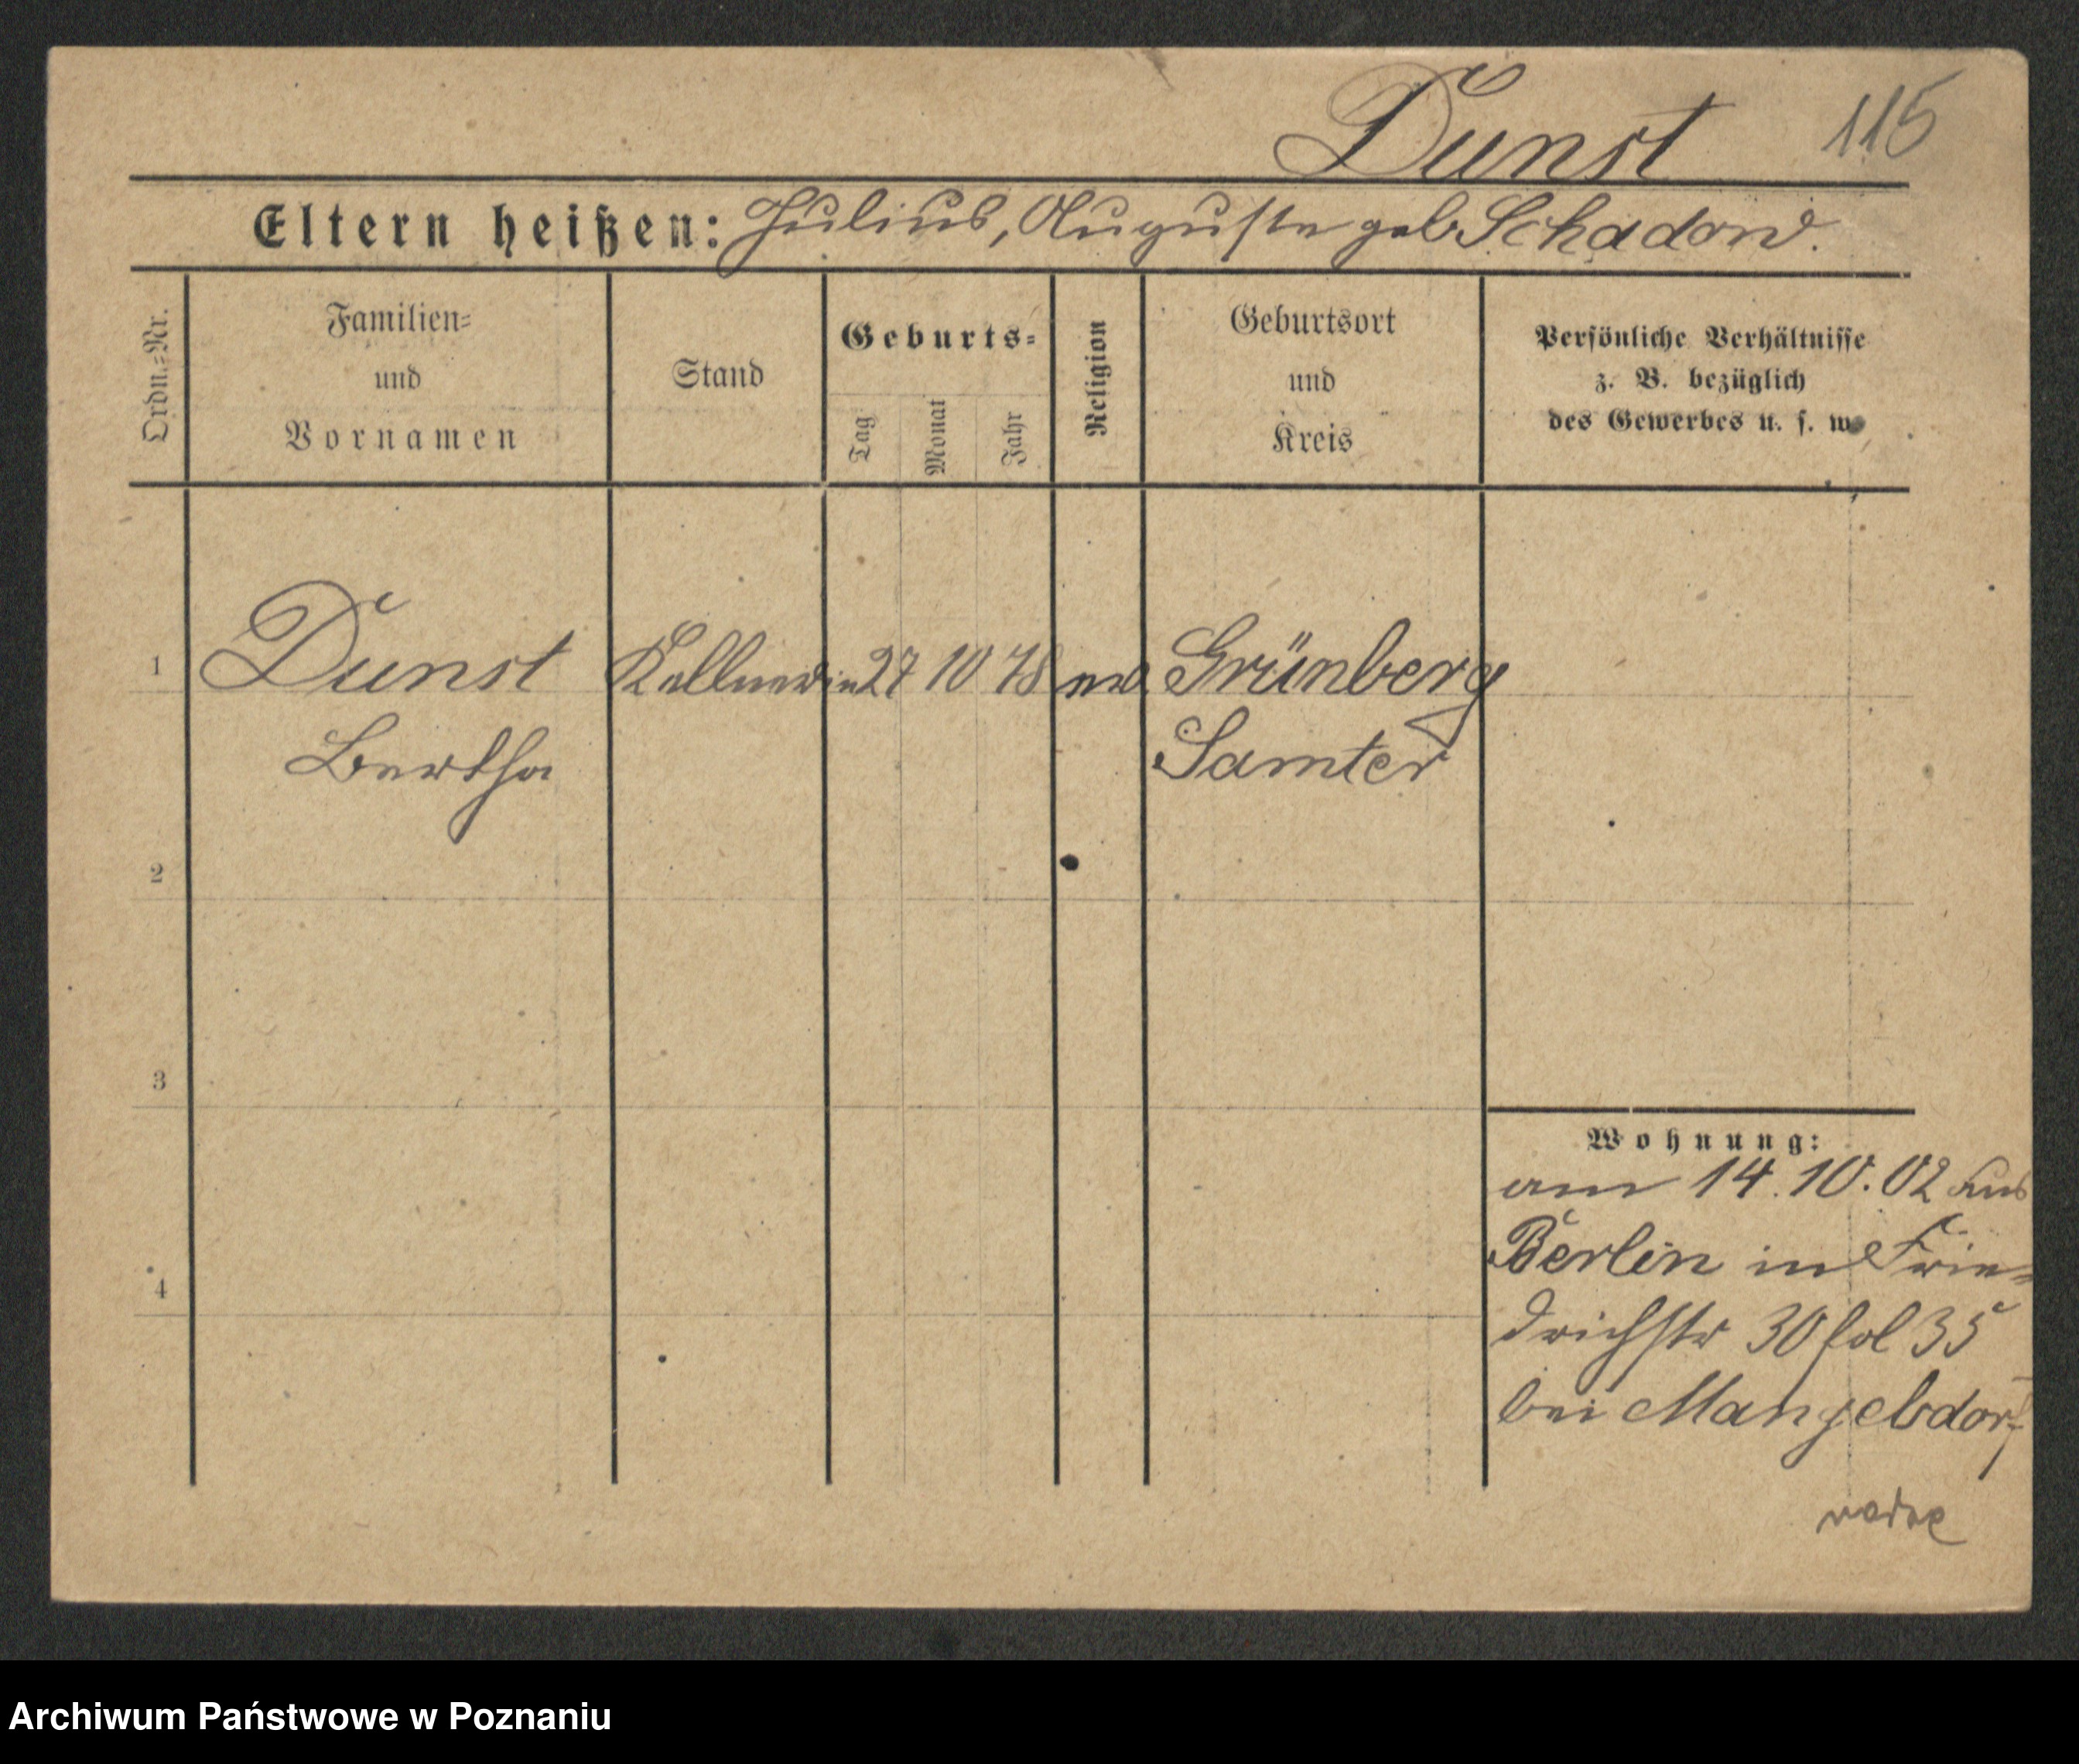 Dunst 115
Eltern heißen: Julius, Auguste geb Schadow.
Ordn.=Nr.
Familien=
und
Vornamen
Stand
Geburts=
Tag
Monat
Jahr
Religion
Geburtsort
und
Kreis
Persönliche Verhältnisse
z. B. bezüglich
des Gewerbes u. s. w.
1 Dunst Kellnerin 27 10 78 Grünberg
Bertha Samter
2
3
4
Wohnung:
am 14.10.02 aus
Berlin in Frie=
drichstr 30 fol 35
bei Mangelsdorf
Archiwum Państwowe w Poznaniu